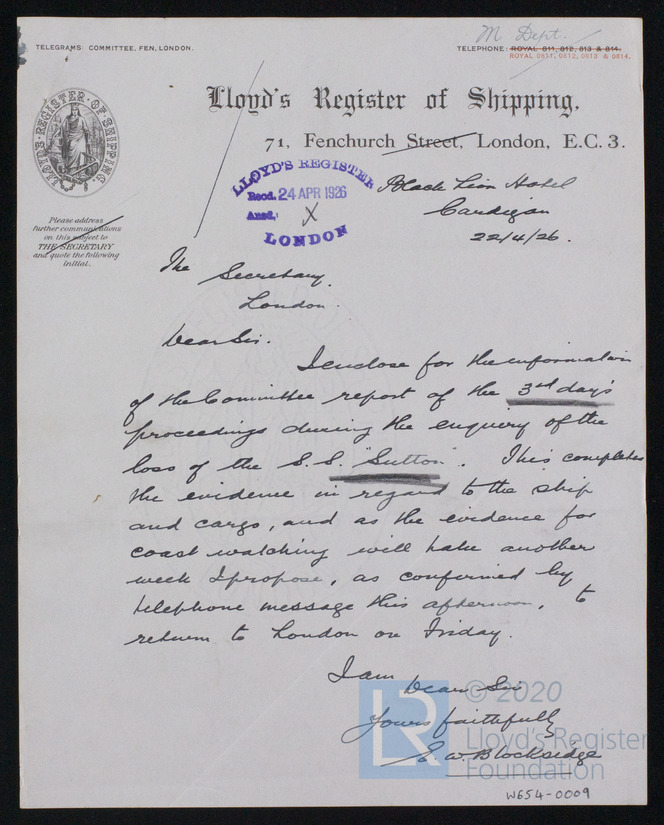 M Dept.
TELEGRAMS: COMMITTEE, FEN, LONDON.
TELEPHONE: ROYAL 811, 812, 813 & 814.
ROYAL 0811, 0812, 0813 & 0814.
Lloyd's Register of Shipping,
71, Fenchurch Street, London, E.C. 3.
LLOYD'S REGISTER OF SHIPPING
LLOYD'S REGISTER
Recd. 24 APR 1926
Ansd. X
LONDON
Please address
further communications
on this subject to
THE SECRETARY
and quote the following
initial.
Black Lion Hotel
Cardigan
22/4/26.
The Secretary,
London.
Dear Sir.
I enclose for the information
of the Committee report of the 3rd day's
proceedings during the enquiry of the
loss of the S.S. "Sutton". This completes
the evidence in regard to the ship
and cargo, and as the evidence for
coast watching will take another
week I propose, as confirmed by
telephone message this afternoon, to
return to London on Friday.
I am Dear Sir
Yours faithfully
E. W. Blocksidge
© 2020
LR
Lloyd's Register
Foundation
W654-0009